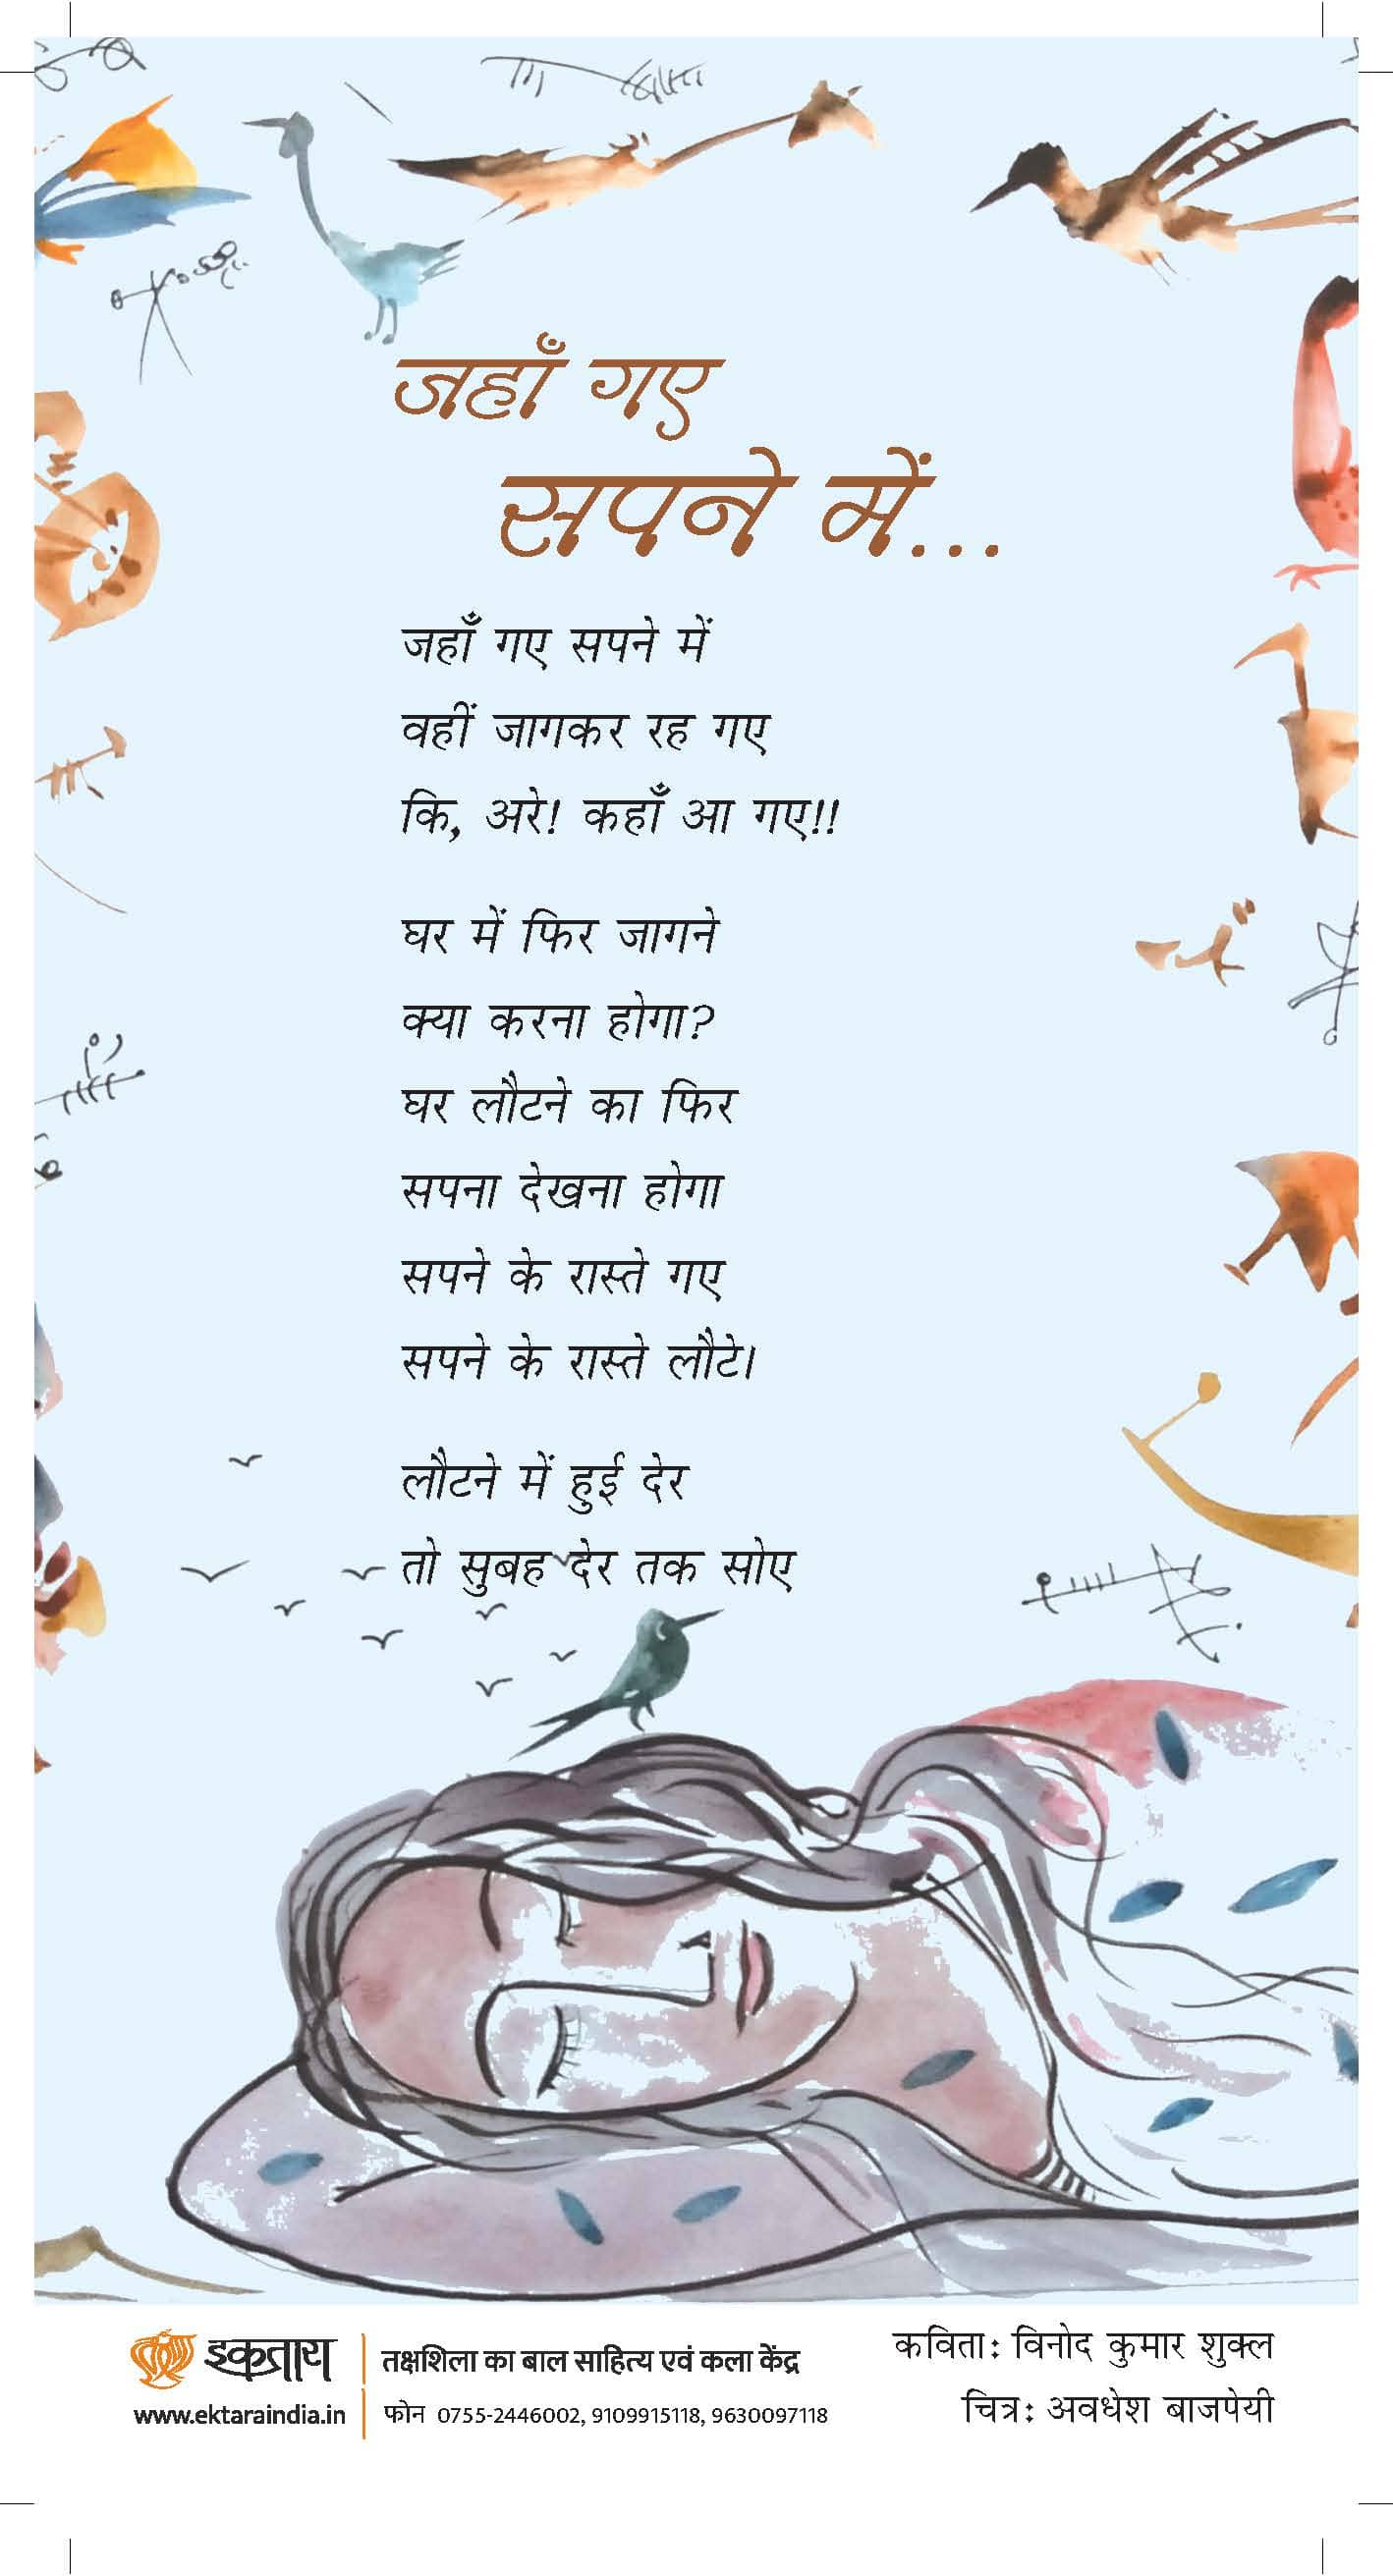 जहाँ गए
सपने में...
जहाँ गए सपने में
वहीं जागकर रह गए
कि, अरे! कहाँ आ गए!!
घर में फिर जागने
क्या करना होगा?
घर लौटने का फिर
सपना देखना होगा
सपने के रास्ते गए
सपने के रास्ते लौटे।
लौटने में हुई देर
तो सुबह देर तक सोए
इकतारा
www.ektaraindia.in
तक्षशिला का बाल साहित्य एवं कला केंद्र
फोन 0755-2446002, 9109915118, 9630097118
कविता: विनोद कुमार शुक्ल
चित्र: अवधेश बाजपेयी